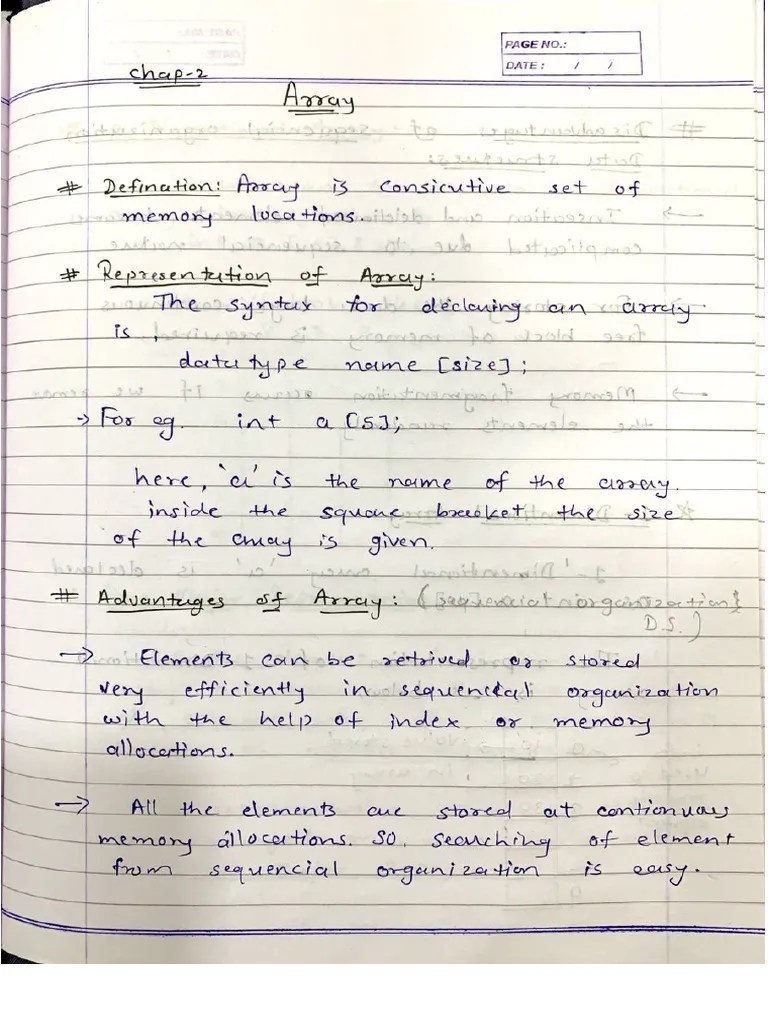 PAGE NO.:
DATE: / /
Chap-2
Array
# Defination: Array is consicutive set of
memory locations.
# Representation of Array:
The syntax for declaring an array
is,
data type name [size];
→ For eg. int a [5];
here, 'a' is the name of the array.
inside the square bracket the size
of the array is given.
# Advantages of Array: (sequencial organization
D.S.)
→ Elements can be retrived or stored
very efficiently in sequencial organization
with the help of index or memory
allocations.
→ All the elements are stored at contionuous
memory allocations. So, searching of element
from sequencial organization is easy.